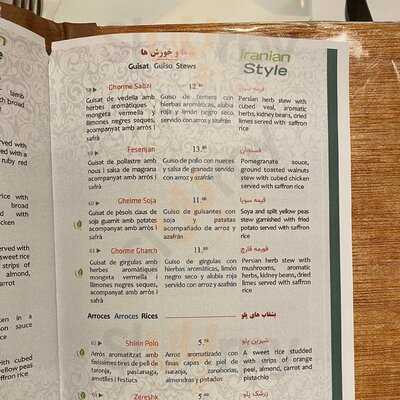 Iranian
Style
خورش ها
Guisat Guiso Stews
58 Ghorme Sabzi 12.
Guisat de vedella amb
herbes aromàtiques,
mongeta vermella y
llimones negres seques,
acompanyat amb arròs i
safrà
Guiso de ternera con
hierbas aromáticas, alubia
roja y limón negro seco,
servido con arroz y azafrán
Persian herb stew with
cubed veal, aromatic
herbs, kidney beans, dried
limes served with saffron
rice
Fesenjan 13.
فسنجان
Guisat de pollastre amb
nous i salsa de magrana
acompanyat amb arròs i
safrà
Guiso de pollo con nueces
y salsa de granada servido
con arroz y azafrán
Pomegranate sauce,
ground toasted walnuts
stew with cubed chicken
served with saffron rice
60 Gheime Soja 11.
قیمه سویا
Guisat de pèsols daus de
soja guarnit amb patates
acompanyat amb arròs i
safrà
Guiso de guisantes con
soja y patatas
acompañado de arroz y
azafrán
Soya and split yellow peas
stew garnished with fried
potato served with saffron
rice
61 Ghorme Gharch 11.
قورمه قارچ
Guisat de girgulas amb
herbes aromàtiques,
mongeta vermella i
llimones negres seques,
acompanyat amb arròs i
safrà
Guiso de girgulas con
hierbas aromáticas, limón
negro seco y alubia roja
servido con arroz y azafrán
Persian herb stew with
mushrooms, aromatic
herbs, kidney beans, dried
limes served with saffron
rice
Arroces Arroces Rices
بشقاب های پلو
62 Shirin Polo 5.
شیرین پلو
Arròs aromatitzat amb
finíssimes tires de pell de
taronja, pastanaga,
ametlles i festucs
Arroz aromatizado con
finas capas de piel de
naranja, zanahorias,
almendras y pistados
A sweet rice studded
with strips of orange
peel, almond, carrot and
pistachio
Zereshk 5.
زرشک پلو